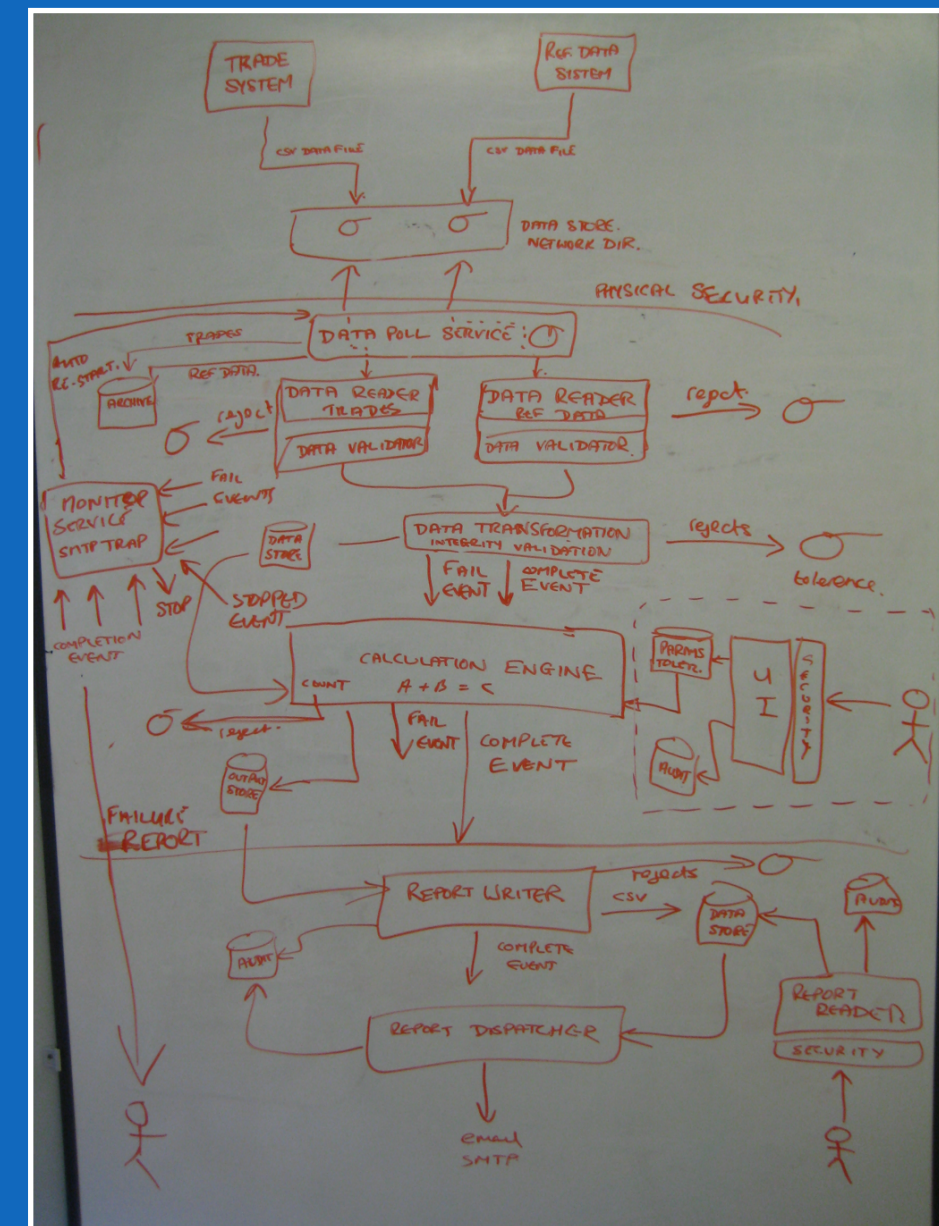 TRADE
SYSTEM
REF DATA
SISTEM
CSV DATA FILE
CSV DATA FILE
DATA STORE.
NETWORK DIR.
PHYSICAL SECURITY,
DATA POLL SERVICE
TRADES
AUTO
RE-START.
REF DATA.
ARCHIVE
DATA READER
TRADES
DATA VALIDATOR
DATA READER
REF DATA
DATA VALIDATOR
reject
reject.
FAIL
EVENTS
MONITOR
SERVICE
SMTP TRAP
DATA
STORE
DATA TRANSFORMATION
INTEGRITY VALIDATION
rejects
tolerence.
FAIL
EVENT
COMPLETE
EVENT
STOP
STOPPED
EVENT
COMPLETION
EVENT
CALCULATION ENGINE
COUNT
A + B = C
PARAMS
TOLER.
UI
SECURITY
AUDIT
reject.
FAIL
EVENT
COMPLETE
EVENT
OUTPUT
STORE
FAILURE
REPORT
REPORT WRITER
rejects
CSV
DATA
STORE
AUDIT
AUDIT
COMPLETE
EVENT
REPORT DISPATCHER
REPORT
READER
SECURITY
email
SMTP